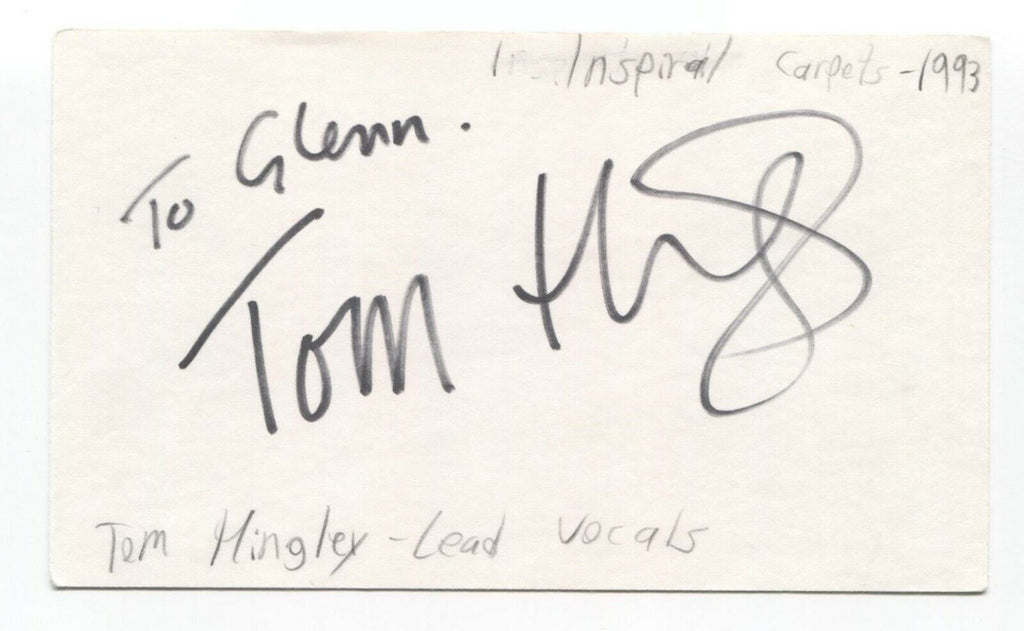 Inspiral Carpets - 1993
To Glenn.
Tom Hingley
Tom Hingley - Lead Vocals